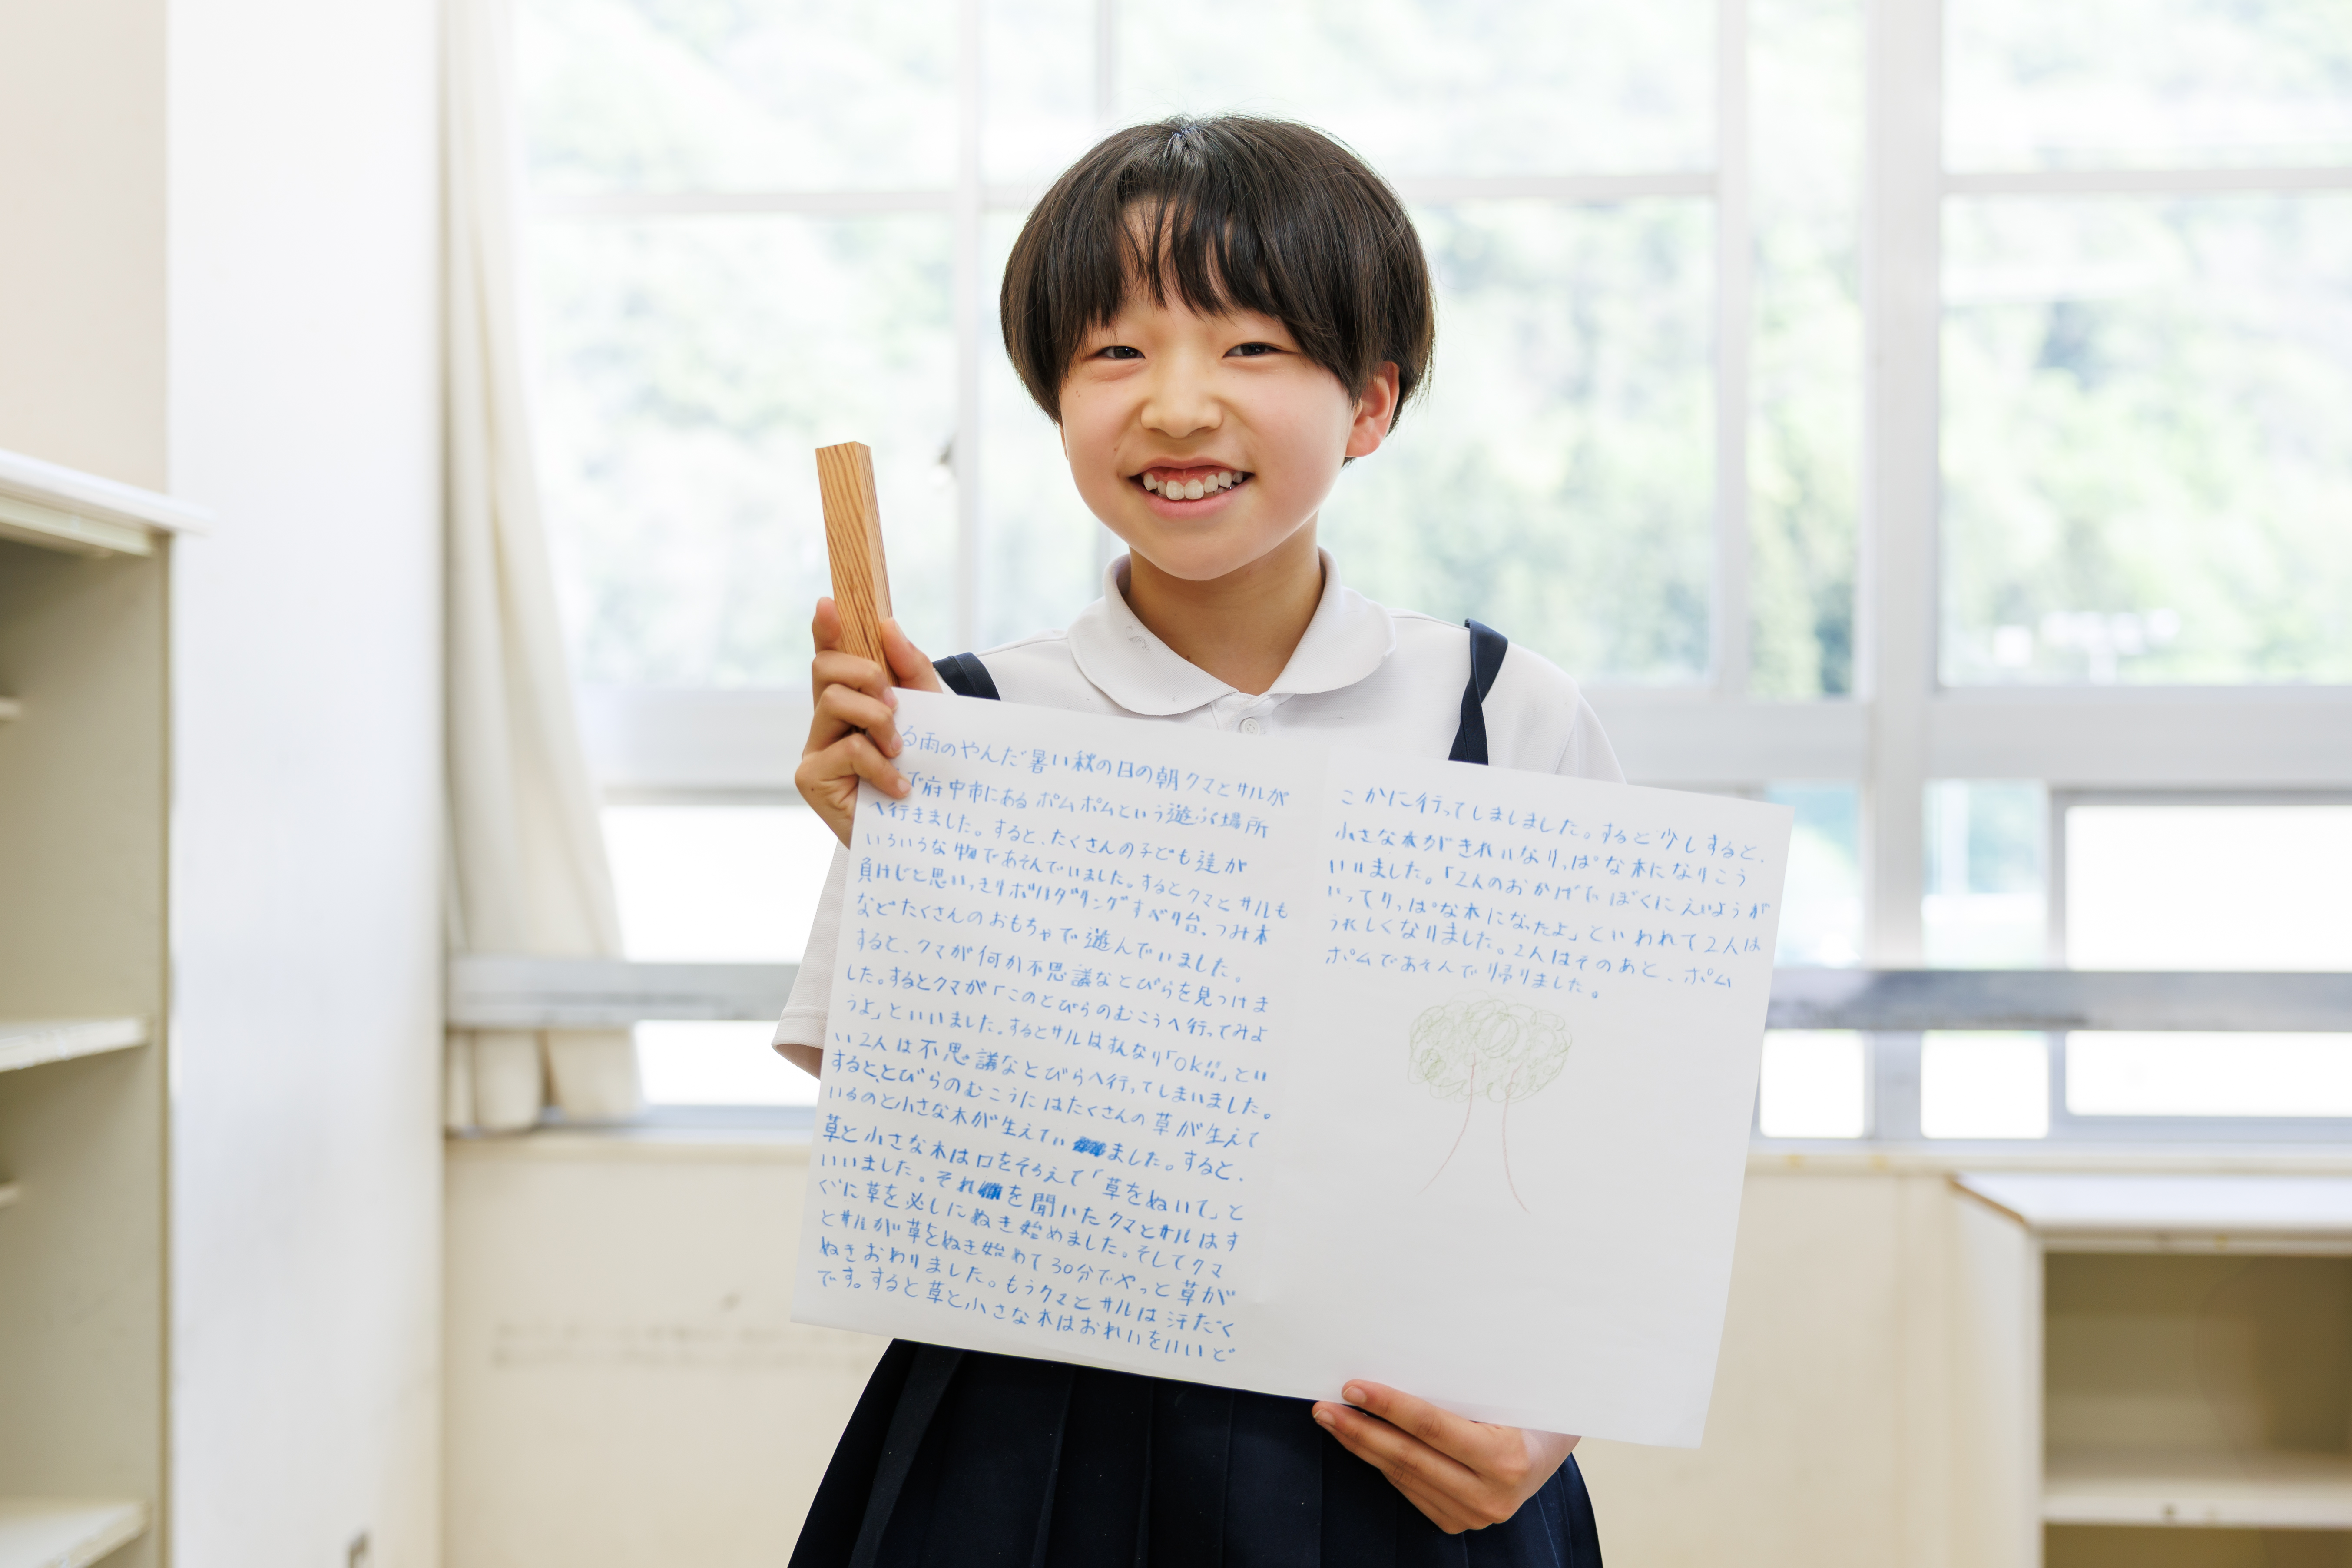 る雨のやんだ暑い秋の日の朝クマとサルが
で府中市にあるポムポムという遊ぶ場所
へ行きました。すると、たくさんの子ども達が
いろいろな物であそんでいました。するとクマとサルも
負けじと思いっきりボルダリングすべり台。つみ木
などたくさんのおもちゃで遊んでいました。
すると、クマが何か不思議なとびらを見つけま
した。するとクマが「このとびらのむこうへ行ってみよ
うよ」といいました。するとサルはすんなり「OK!!」とい
い2人は不思議なとびらへ行ってしまいました。
すると、とびらのむこうにはたくさんの草が生えて
いるのと小さな木が生えていました。すると、
草と小さな木は口をそろえて「草をぬいて」と
いいました。それを聞いたクマとサルはす
ぐに草を必しにぬき始めました。そしてクマ
とサルが草をぬき始めて30分でやっと草が
ぬきおわりました。もうクマとサルは汗だく
です。すると草と小さな木はおれいをいいど
こかに行ってしましました。すると少しすると、
小さな木がきれいなりっぱな木になりこう
いいました。「2人のおかげでぼくにえいようが
いってりっぱな木になったよ」といわれて2人は
うれしくなりました。2人はそのあと、ポム
ポムであそんで帰りました。